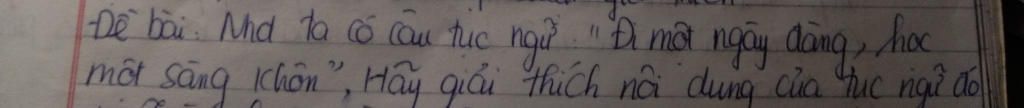 Đề bài: Nhd ta có câu tục ngữ "Đi một ngày đàng, học
một sàng khôn", Hãy giải thích nội dung của tục ngữ đó